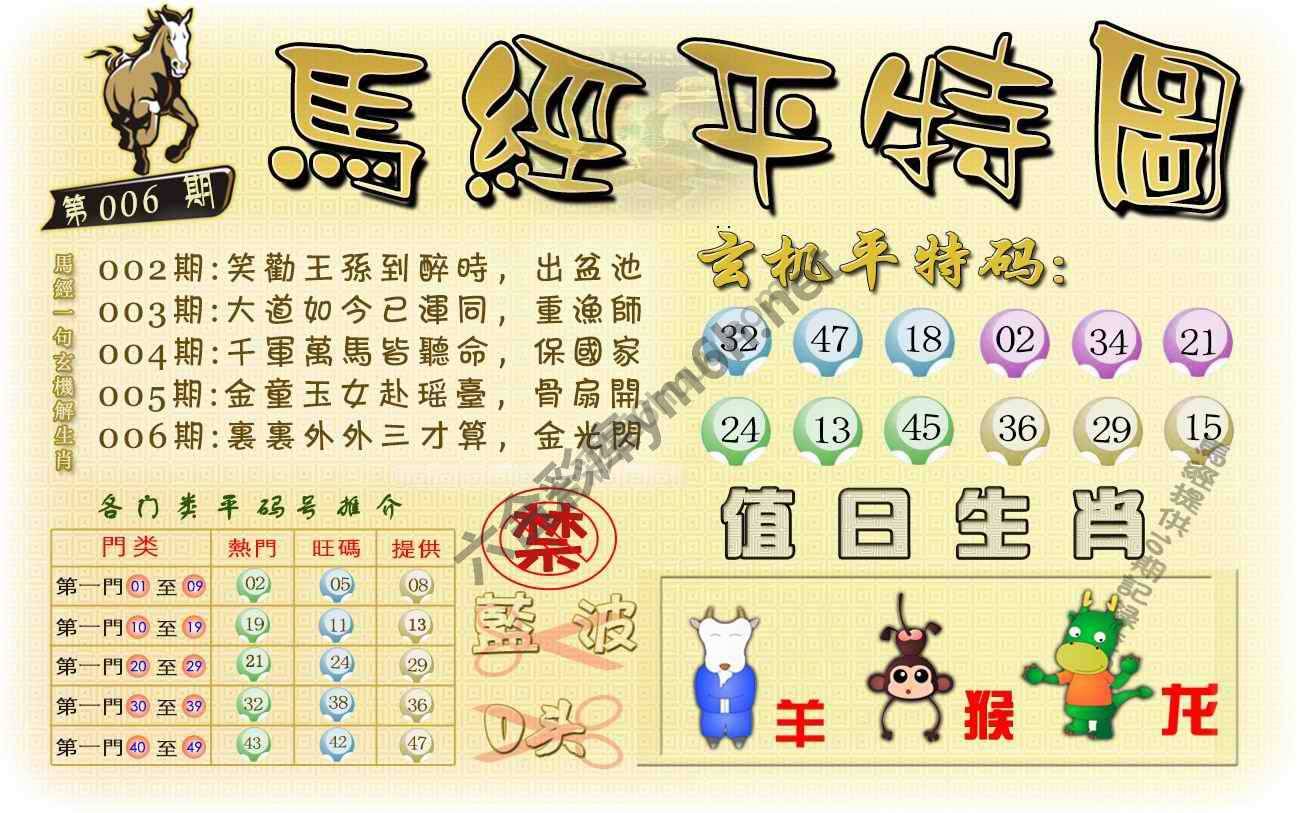 馬經平特圖
第006期
馬經一句玄機解生肖
002期:笑勸王孫到醉時，出盆池
003期:大道如今已渾同，重漁師
004期:千軍萬馬皆聽命，保國家
005期:金童玉女赴瑶臺，骨扇開
006期:裏裏外外三才算，金光閃
玄机平特码:
32 47 18 02 34 21
24 13 45 36 29 15
各门类平码号推介
門类 熱門 旺碼 提供
第一門 01 至 09 02 05 08
第一門 10 至 19 19 11 13
第一門 20 至 29 21 24 29
第一門 30 至 39 32 38 36
第一門 40 至 49 43 42 47
禁
藍波
0头
值日生肖
羊 猴 龙
六合彩库